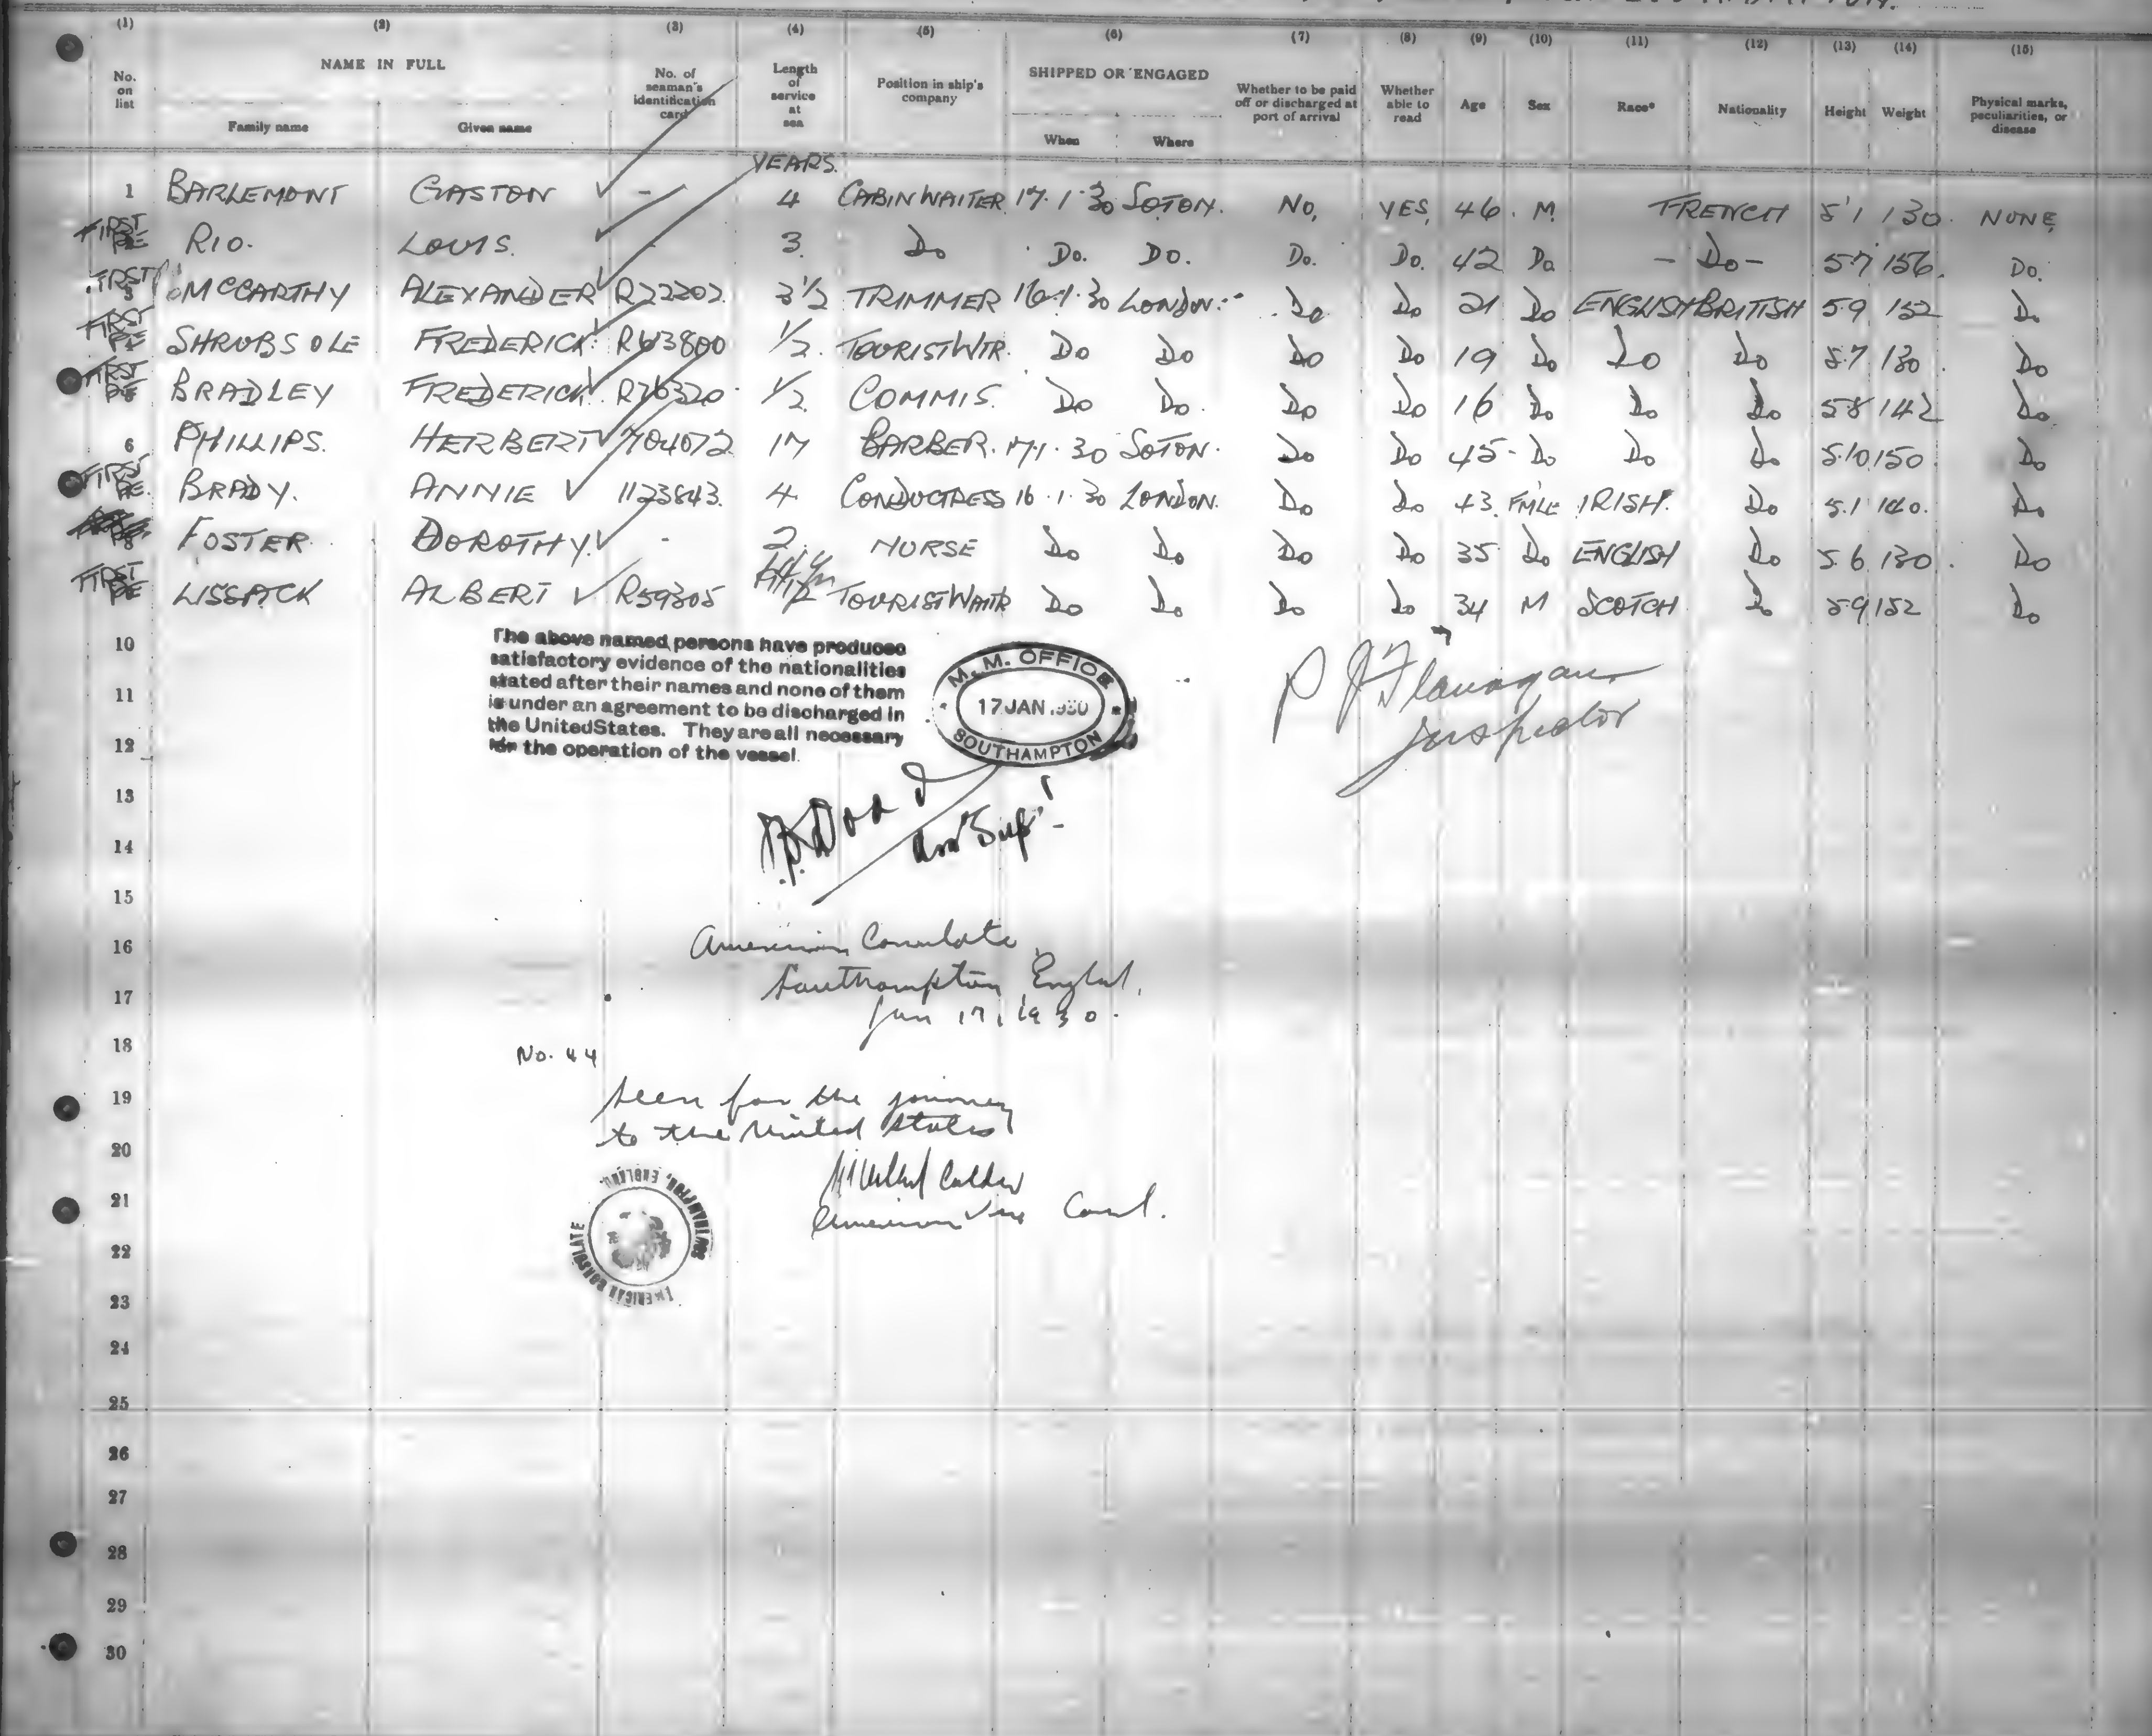 (1) (2) (3) (4) (5) (6) (7) (8) (9) (10) (11) (12) (13) (14) (15)
No. on list
NAME IN FULL
Family name Given name
No. of seaman's identification card
Length of service at sea
Position in ship's company
SHIPPED OR ENGAGED
When Where
Whether to be paid off or discharged at port of arrival
Whether able to read
Age Sex Race* Nationality Height Weight
Physical marks, peculiarities, or disease
YEARS.
1 BARLEMONT GASTON - 4 CABIN WAITER 17.1.30 SOTON. NO, YES, 46. M. FRENCH 5'1 130. NONE,
FIRST RIO. LOUIS. - 3. Do Do. Do. Do. Do. 42 Do - Do - 5.7 156. Do.
FIRST MCCARTHY ALEXANDER R22202. 3 1/2 TRIMMER 16.1.30 LONDON. Do Do 21 Do ENGLISH BRITISH 5.9 152 Do
FIRST SHRUBSOLE FREDERICK. R63800 1/2. TOURIST WTR. Do Do Do Do 19 Do Do Do 5.7 130. Do
FIRST BRADLEY FREDERICK. R76320. 1/2. COMMIS. Do Do. Do Do 16 Do Do Do 5.8 142 Do
6 PHILLIPS. HERBERT 704072 17 BARBER. 17.1.30 SOTON. Do Do 45- Do Do Do 5.10 150. Do
FIRST BRADY. ANNIE 1123843. 4 CONDUCTRESS 16.1.30 LONDON. Do Do 43. FMLE IRISH. Do 5.1 140. Do
FOSTER DOROTHY. - 2. NURSE Do Do Do Do 35 Do ENGLISH Do 5.6 130. Do
FIRST LISSACK ALBERT R59305 1/2 TOURIST WAITR Do Do Do Do 34 M SCOTCH Do 5.9 152 Do
10
The above named persons have produced
satisfactory evidence of the nationalities
stated after their names and none of them
is under an agreement to be discharged in
the United States. They are all necessary
for the operation of the vessel.
M. M. OFFICE
17 JAN 1930
SOUTHAMPTON
P J Flanagan
Inspector
11
12
13
14
15
16
American Consulate
Southampton England,
17
Jan 17, 1930.
18
No. 44
19
Seen for the journey
to the United States
20
21
Calder
American Vice Consul.
AMERICAN CONSULATE
SOUTHAMPTON, ENGLAND.
22
23
24
25
26
27
28
29
30